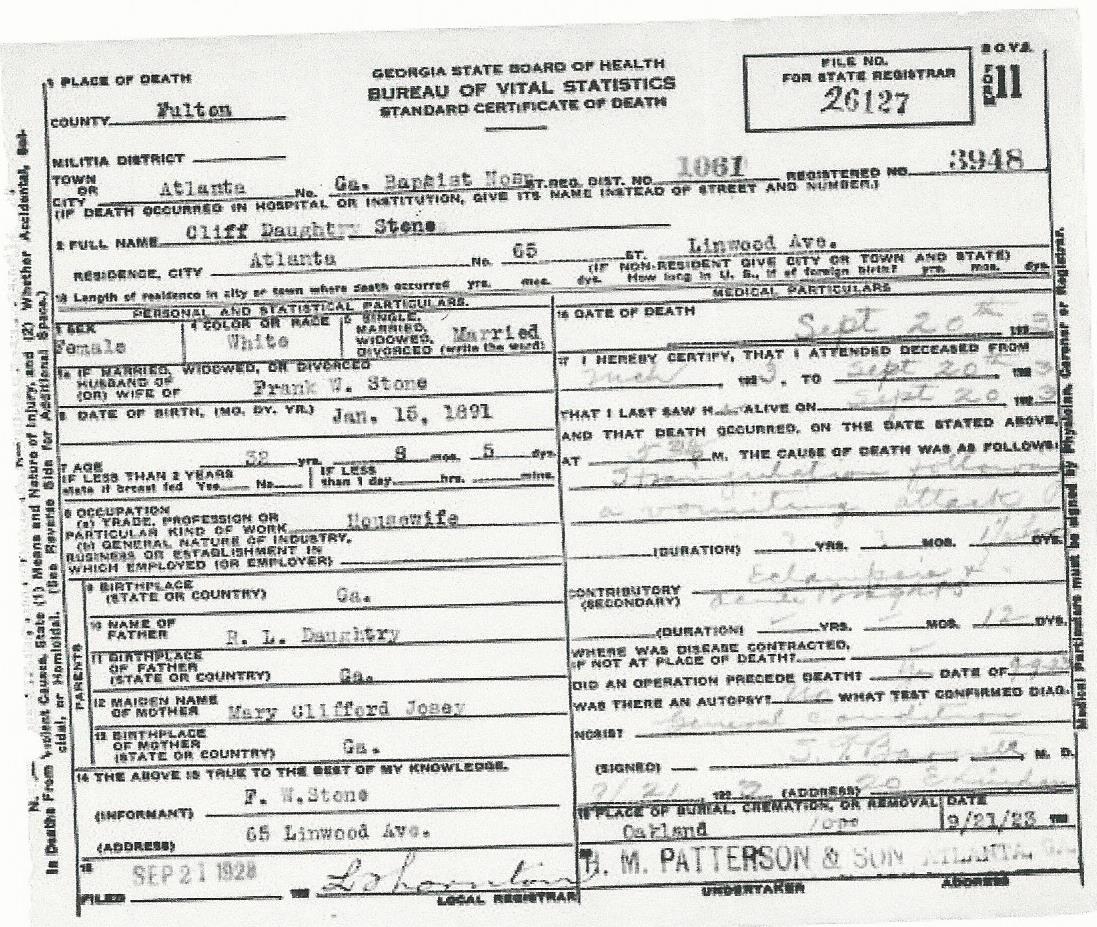 1 PLACE OF DEATH
COUNTY Fulton
GEORGIA STATE BOARD OF HEALTH
BUREAU OF VITAL STATISTICS
STANDARD CERTIFICATE OF DEATH
FILE NO.
FOR STATE REGISTRAR
26127
B O V.S.
FORM 11
MILITIA DISTRICT
TOWN OR CITY Atlanta No. Ga. Baptist Hosp ST. REG. DIST. NO. 1061 REGISTERED NO. 3948
(IF DEATH OCCURRED IN HOSPITAL OR INSTITUTION, GIVE ITS NAME INSTEAD OF STREET AND NUMBER.)
2 FULL NAME Cliff Daughtry Stone
RESIDENCE, CITY Atlanta No. 65 ST. Linwood Ave.
(IF NON-RESIDENT GIVE CITY OR TOWN AND STATE)
Length of residence in city or town where death occurred yrs. mos. dys. How long in U. S., if of foreign birth? yrs. mos. dys.
PERSONAL AND STATISTICAL PARTICULARS.
3 SEX Female
4 COLOR OR RACE White
5 SINGLE, MARRIED, WIDOWED, DIVORCED (write the word) Married
5a IF MARRIED, WIDOWED, OR DIVORCED
HUSBAND OF
(OR) WIFE OF Frank W. Stone
6 DATE OF BIRTH, (MO. DY. YR.) Jan. 15, 1891
7 AGE 32 yrs. 8 mos. 5 dys.
IF LESS THAN 2 YEARS
state if breast fed Yes No
IF LESS than 1 day hrs. mins.
8 OCCUPATION
(a) TRADE, PROFESSION OR
PARTICULAR KIND OF WORK Housewife
(b) GENERAL NATURE OF INDUSTRY,
BUSINESS OR ESTABLISHMENT IN
WHICH EMPLOYED (OR EMPLOYER)
PARENTS
9 BIRTHPLACE
(STATE OR COUNTRY) Ga.
10 NAME OF
FATHER R. L. Daughtry
11 BIRTHPLACE
OF FATHER
(STATE OR COUNTRY) Ga.
12 MAIDEN NAME
OF MOTHER Mary Clifford Josey
13 BIRTHPLACE
OF MOTHER
(STATE OR COUNTRY) Ga.
14 THE ABOVE IS TRUE TO THE BEST OF MY KNOWLEDGE.
(INFORMANT) F. W.Stone
(ADDRESS) 65 Linwood Ave.
15
FILED SEP 21 1923 192
LOCAL REGISTRAR
MEDICAL PARTICULARS
16 DATE OF DEATH Sept 20th 1923
17 I HEREBY CERTIFY, THAT I ATTENDED DECEASED FROM
1923, TO Sept 20th 1923
THAT I LAST SAW H ALIVE ON Sept 20 1923
AND THAT DEATH OCCURRED, ON THE DATE STATED ABOVE,
AT M. THE CAUSE OF DEATH WAS AS FOLLOWS:
Strangulation following
a vomiting attack
(DURATION) YRS. MOS. DYS.
CONTRIBUTORY
(SECONDARY) Eclampsia &
acute Brights
(DURATION) YRS. MOS. 12 DYS.
WHERE WAS DISEASE CONTRACTED,
IF NOT AT PLACE OF DEATH?
DID AN OPERATION PRECEDE DEATH? DATE OF
WAS THERE AN AUTOPSY? No WHAT TEST CONFIRMED DIAG-
NOSIS? General Condition
(SIGNED) M. D.
9/21 192 (ADDRESS) 20
18 PLACE OF BURIAL, CREMATION, OR REMOVAL
Oakland
DATE
9/21/23 192
H. M. PATTERSON & SON ATLANTA, GA.
UNDERTAKER ADDRESS
In Deaths From Violent Causes, State (1) Means and Nature of Injury, and (2) Whether Accidental, Sui-
cidal, or Homicidal. (See Reverse Side for Additional Space.)
Medical Particulars must be signed by Physician, Coroner or Registrar.